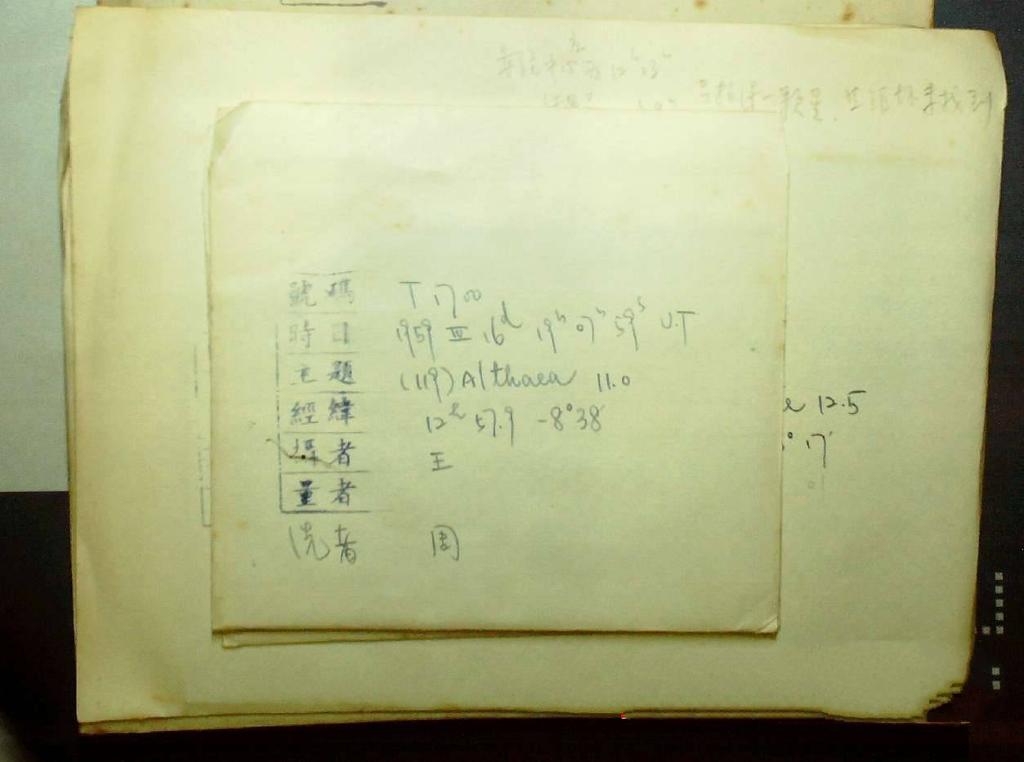 號碼 T 1700
時日 1959 III 16d 19h 07m 59s U.T
主題 (119) Althaea 11.0
經緯 12h 57.9 -8°38'
攝者 王
量者
洗者 周
12.5
17'